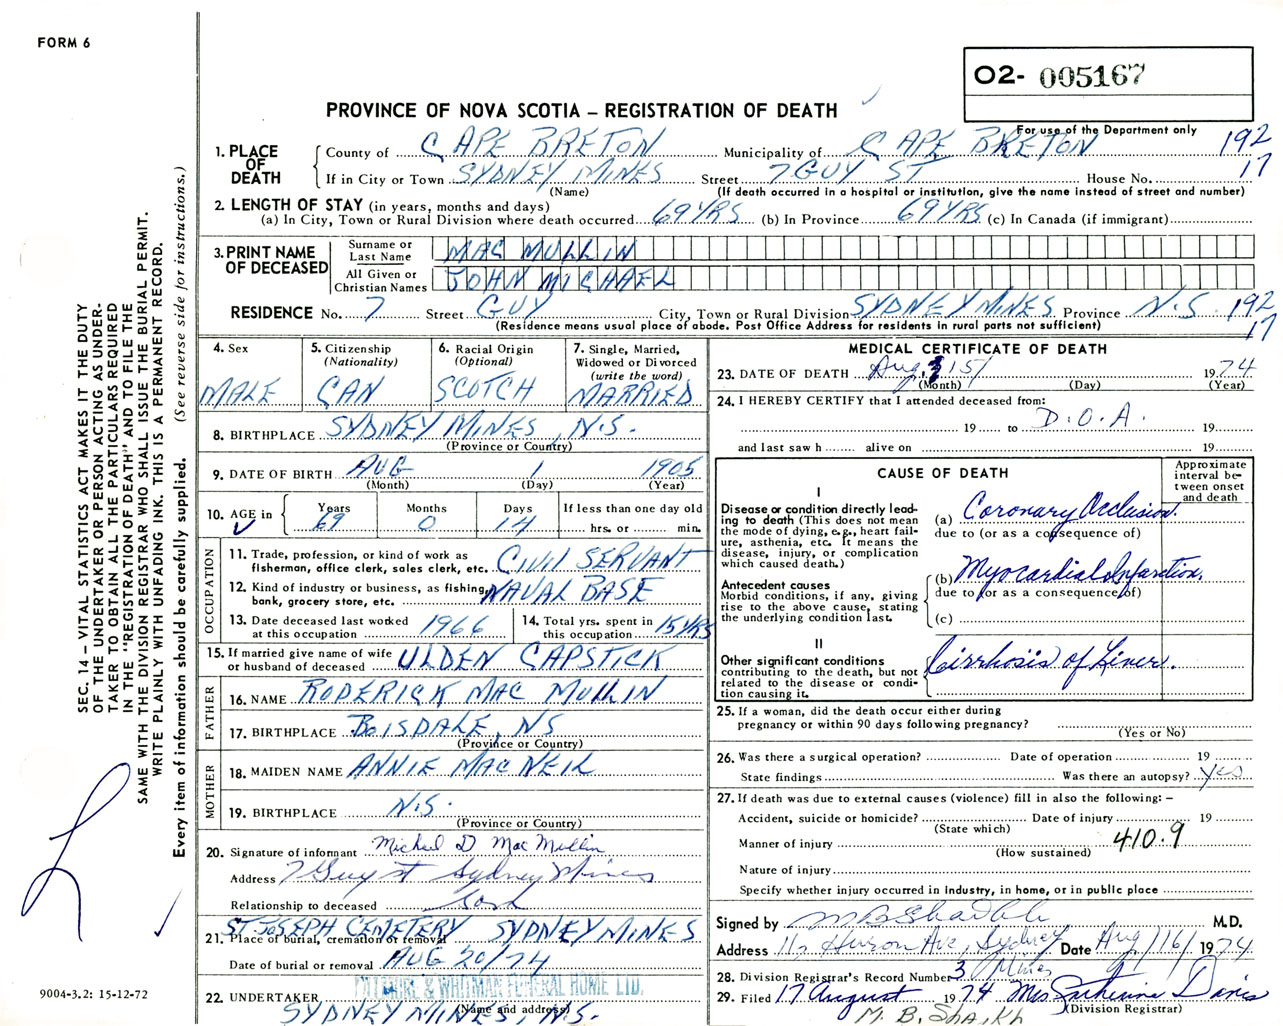 FORM 6
O2- 005167
PROVINCE OF NOVA SCOTIA – REGISTRATION OF DEATH
For use of the Department only
1. PLACE OF DEATH
County of CAPE BRETON Municipality of CAPE BRETON 192
If in City or Town SYDNEY MINES Street 7 GUY ST House No. 17
(Name) (If death occurred in a hospital or institution, give the name instead of street and number)
2. LENGTH OF STAY (in years, months and days)
(a) In City, Town or Rural Division where death occurred 69 YRS (b) In Province 69 YRS (c) In Canada (if immigrant)
3. PRINT NAME OF DECEASED
Surname or Last Name MAC MULLIN
All Given or Christian Names JOHN MICHAEL
RESIDENCE No. 7 Street GUY City, Town or Rural Division SYDNEY MINES Province N.S. 192
(Residence means usual place of abode. Post Office Address for residents in rural parts not sufficient) 17
4. Sex
MALE
5. Citizenship
(Nationality)
CAN
6. Racial Origin
(Optional)
SCOTCH
7. Single, Married,
Widowed or Divorced
(write the word)
MARRIED
8. BIRTHPLACE SYDNEY MINES, N.S.
(Province or Country)
9. DATE OF BIRTH AUG 1 1905
(Month) (Day) (Year)
10. AGE in
Years Months Days If less than one day old
69 0 14 hrs. or min.
OCCUPATION
11. Trade, profession, or kind of work as
fisherman, office clerk, sales clerk, etc. CIVIL SERVANT
12. Kind of industry or business, as fishing,
bank, grocery store, etc. NAVAL BASE
13. Date deceased last worked
at this occupation 1966
14. Total yrs. spent in
this occupation 15 YRS
15. If married give name of wife
or husband of deceased ULDEN CAPSTICK
FATHER
16. NAME RODERICK MAC MULLIN
17. BIRTHPLACE BOISDALE, NS
(Province or Country)
MOTHER
18. MAIDEN NAME ANNIE MAC NEIL
19. BIRTHPLACE N.S.
(Province or Country)
20. Signature of informant Michael D Mac Mullin
Address 7 Guy st Sydney Mines
Relationship to deceased
ST. JOSEPH CEMETERY SYDNEY MINES
21. Place of burial, cremation or removal
Date of burial or removal AUG 20/74
& WHITMAN FUNERAL HOME LTD.
22. UNDERTAKER
(Name and address)
SYDNEY MINES, N.S.
MEDICAL CERTIFICATE OF DEATH
23. DATE OF DEATH Aug, 15/ 1974
(Month) (Day) (Year)
24. I HEREBY CERTIFY that I attended deceased from:
19 to D.O.A. 19
and last saw h alive on 19
CAUSE OF DEATH
Approximate interval between onset and death
I
Disease or condition directly leading to death (This does not mean the mode of dying, e.g., heart failure, asthenia, etc. It means the disease, injury, or complication which caused death.)
(a) Coronary Occlusion.
due to (or as a consequence of)
Antecedent causes
Morbid conditions, if any, giving rise to the above cause, stating the underlying condition last.
(b) Myocardial Infarction.
due to (or as a consequence of)
(c)
II
Other significant conditions
contributing to the death, but not related to the disease or condition causing it.
Cirrhosis of Liver.
25. If a woman, did the death occur either during
pregnancy or within 90 days following pregnancy?
(Yes or No)
26. Was there a surgical operation? Date of operation 19
State findings Was there an autopsy? Yes
27. If death was due to external causes (violence) fill in also the following: –
Accident, suicide or homicide? Date of injury 19
(State which)
Manner of injury 410.9
(How sustained)
Nature of injury
Specify whether injury occurred in industry, in home, or in public place
Signed by M.B Shaikh M.D.
Address Huron Ave, Sydney Date Aug/16/ 1974
28. Division Registrar's Record Number 3 Mines
29. Filed 17 August 1974 Mrs Catherine Davis
(Division Registrar)
M. B. SHAIKH
SEC. 14 – VITAL STATISTICS ACT MAKES IT THE DUTY
OF THE UNDERTAKER OR PERSON ACTING AS UNDER-
TAKER TO OBTAIN ALL THE PARTICULARS REQUIRED
IN THE "REGISTRATION OF DEATH" AND TO FILE THE
SAME WITH THE DIVISION REGISTRAR WHO SHALL ISSUE THE BURIAL PERMIT.
WRITE PLAINLY WITH UNFADING INK. THIS IS A PERMANENT RECORD.
Every item of information should be carefully supplied. (See reverse side for instructions.)
9004-3.2: 15-12-72